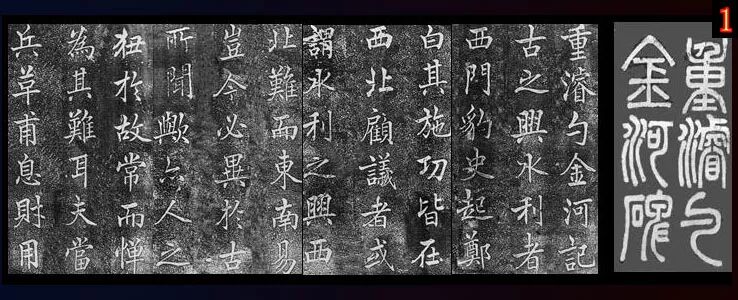 1
重濬勺
金河碑
重濬勺金河記
古之興水利者
西門豹史起鄭
白其施功皆在
西北顧議者或
謂水利之興西
北難而東南易
豈今必異於古
所聞歟亦人之
狃於故常而憚
為其難耳夫當
兵革甫息財用